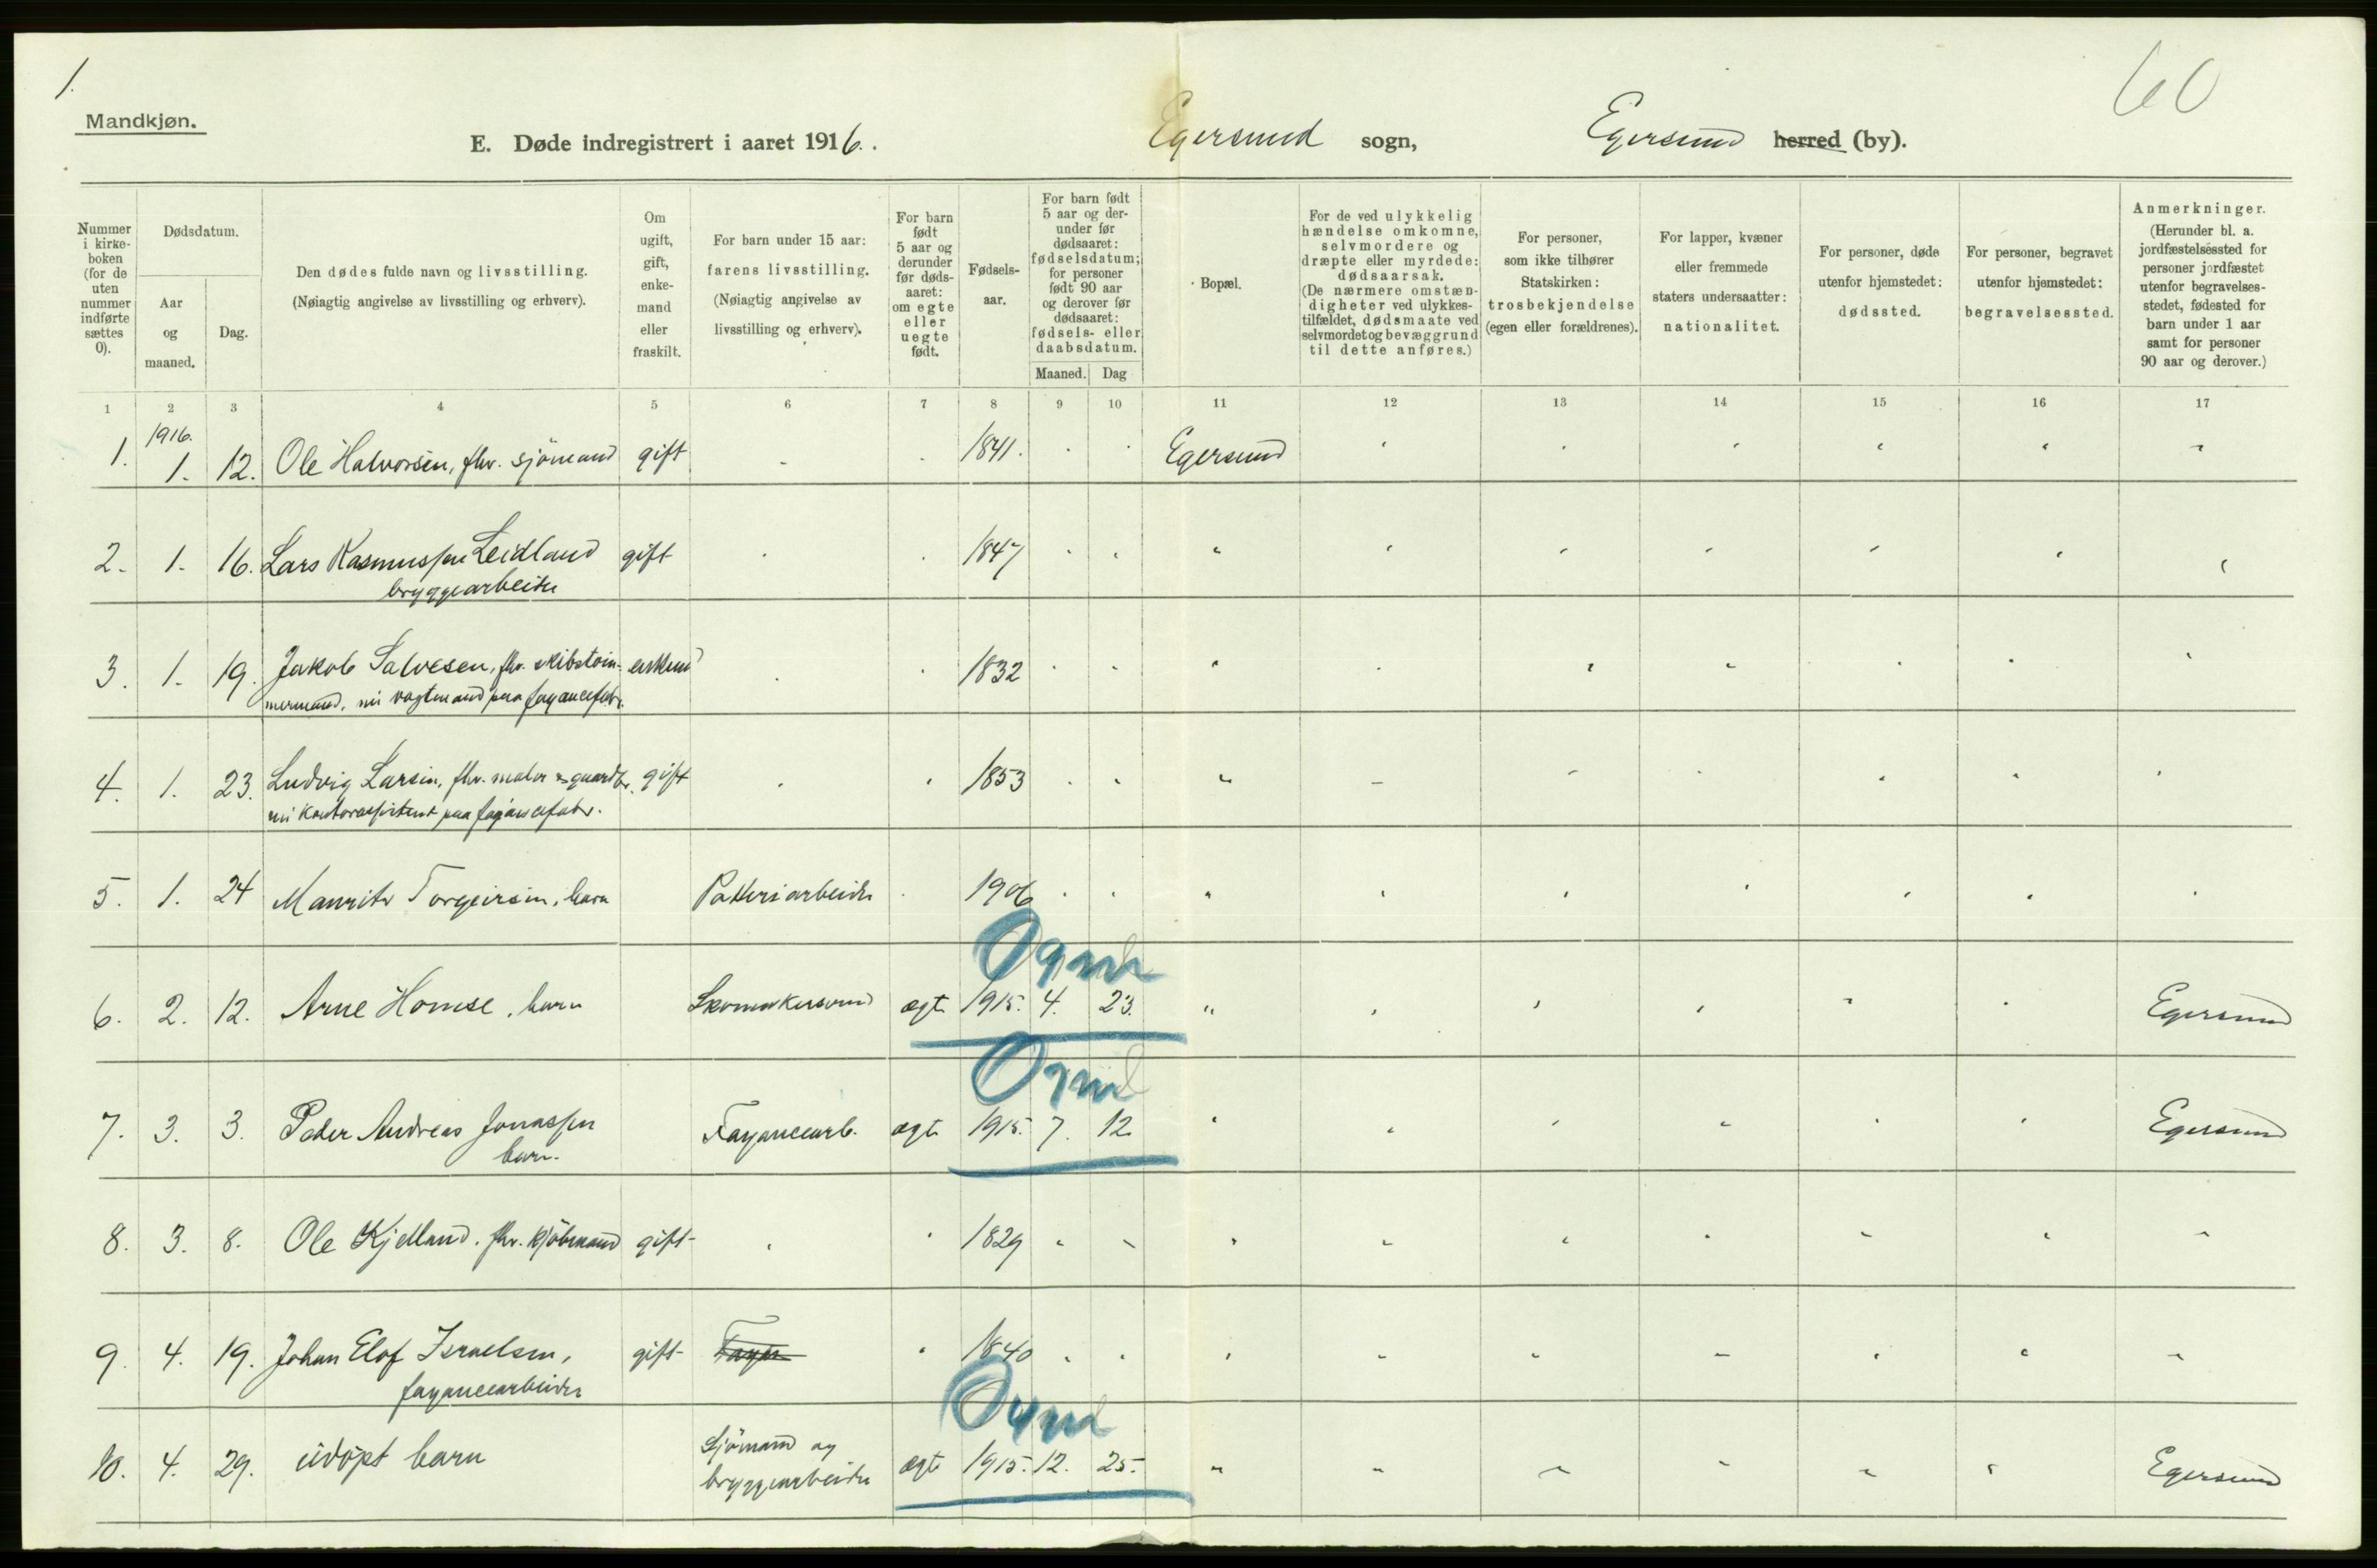 1.
60
Mandkjøn.
E. Døde indregistrert i aaret 1916. .
Egersund sogn,
Egersund herred (by).
Nummer i kirke-boken (for de uten nummer indførte sættes 0).
Dødsdatum.
Aar og maaned.
Dag.
Den dødes fulde navn og livsstilling.
(Nøiagtig angivelse av livsstilling og erhverv).
Om ugift, gift, enke-mand eller fraskilt.
For barn under 15 aar: farens livsstilling.
(Nøiagtig angivelse av livsstilling og erhverv).
For barn født 5 aar og derunder før døds-aaret: om egte eller uegte født.
Fødsels-aar.
For barn født 5 aar og der-under før dødsaaret: fødselsdatum; for personer født 90 aar og derover før dødsaaret: fødsels- eller daabsdatum.
Maaned. Dag
Bopæl.
For de ved ulykkelig hændelse omkomne, selvmordere og dræpte eller myrdede: dødsaarsak.
(De nærmere omstæn-digheter ved ulykkes-tilfældet, dødsmaate ved selvmordet og bevæggrund til dette anføres.)
For personer, som ikke tilhører Statskirken: trosbekjendelse (egen eller forældrenes).
For lapper, kvæner eller fremmede staters undersaatter: nationalitet.
For personer, døde utenfor hjemstedet: dødssted.
For personer, begravet utenfor hjemstedet: begravelsessted.
Anmerkninger.
(Herunder bl. a. jordfæstelsessted for personer jordfæstet utenfor begravelses-stedet, fødested for barn under 1 aar samt for personer 90 aar og derover.)
1 2 3 4 5 6 7 8 9 10 11 12 13 14 15 16 17
1916.
1. 1. 12. Ole Halvorsen, fhv. sjömand gift 1841. Egersund
2. 1. 16. Lars Rasmussen Leidland gift 1847 "
bryggearbeider
3. 1. 19. Jakob Salvesen, fhv. skibstöm- enkem 1832 "
mermand, nu vagtmand paa fayancefabr.
4. 1. 23. Ludvig Larsen, fhv. maler gift 1853 "
nu kontorassistent paa fajancefabr.
5. 1. 24 Mauritz Torgeirsen, barn Potteriarbeider 1906 "
Ogml
6. 2. 12. Arne Homse, barn Skomakersvend ægt 1915. 4. 23. " Egersund
Ogml
7. 3. 3. Peder Andreas Jonassen Fayancearb. ægt 1915. 7. 12. " Egersund
barn.
8. 3. 8. Ole Kjelland. fhv. kjöbmand gift 1829 "
9. 4. 19. Johan Elof Israelsen, gift Fayan 1840 "
fayancearbeider
Ogml
10. 4. 29. udöpt barn Sjömand og ægt 1915. 12. 25. " Egersund
bryggearbeider